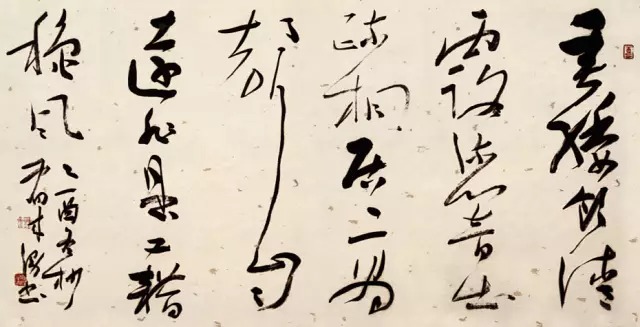 垂緌飲清
露流響出
疏桐居高
聲自
遠非是藉
秋風
乙酉冬杪